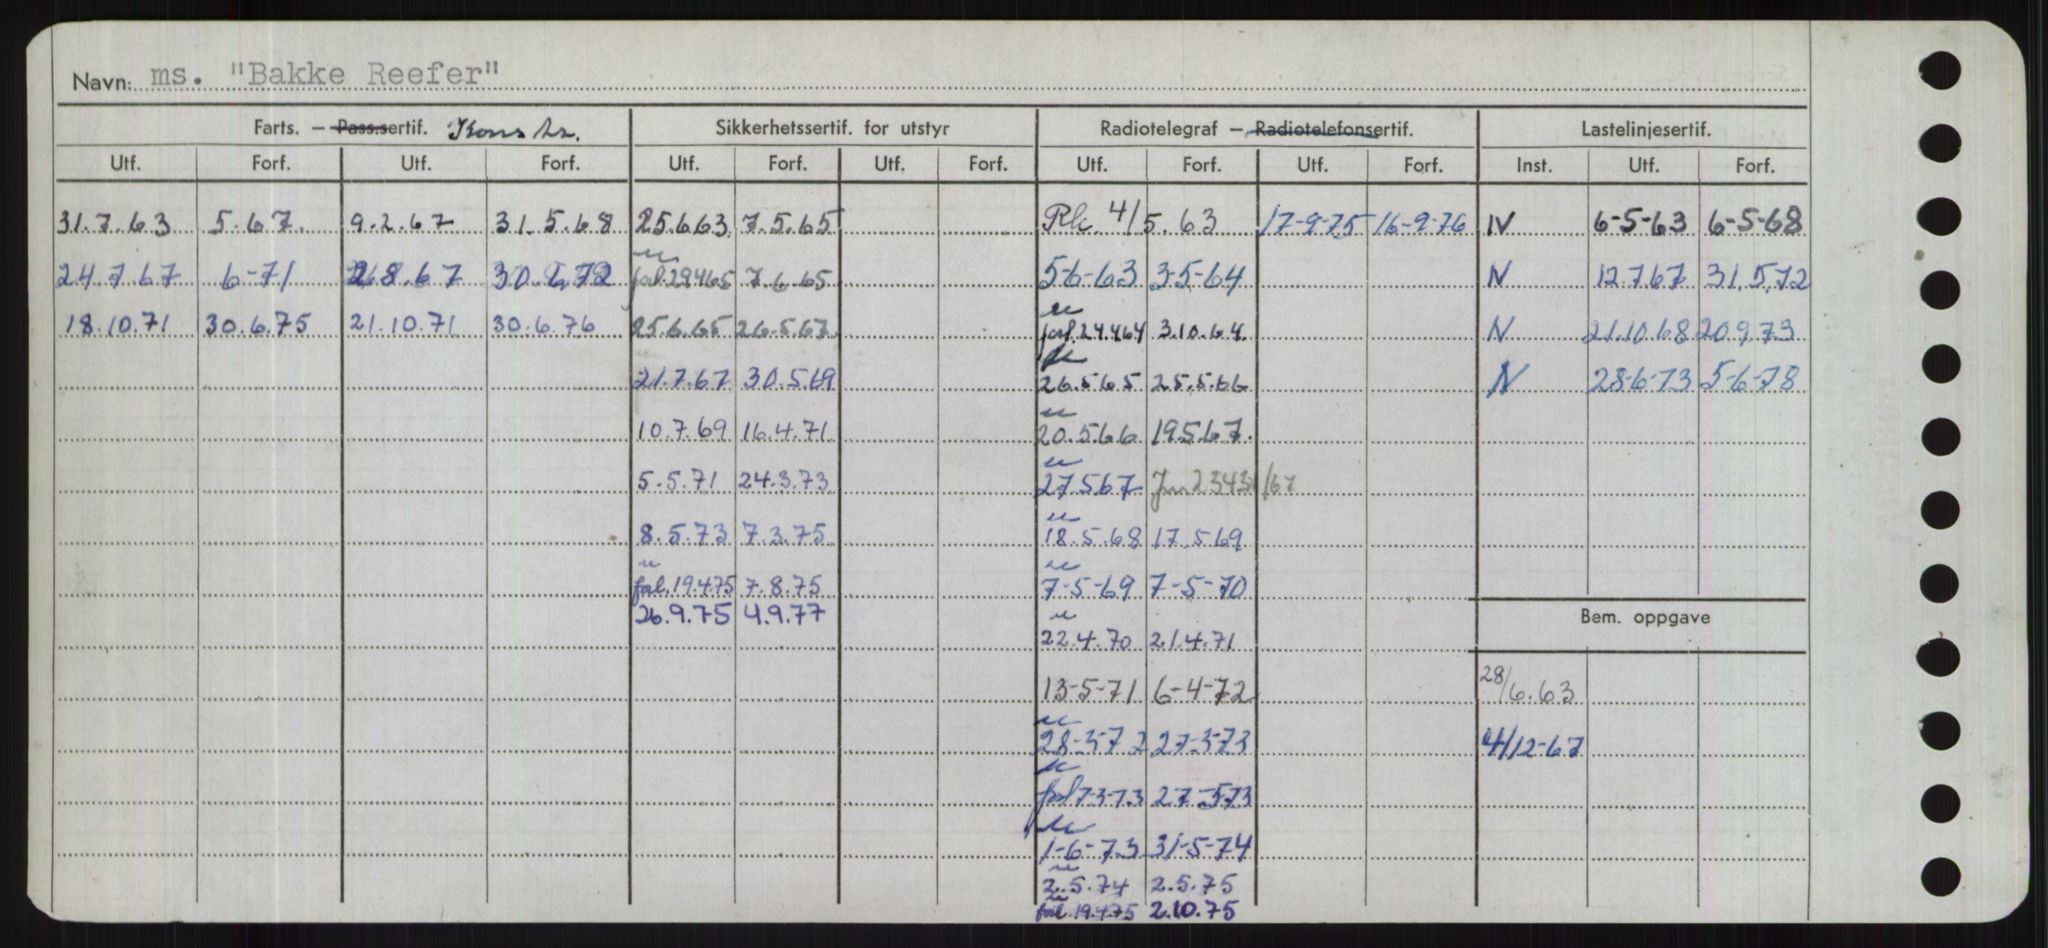 Navn: ms. "Bakke Reefer"
Farts. – Pass.sertif. Konstr. Sikkerhetssertif. for utstyr Radiotelegraf – Radiotelefonsertif. Lastelinjesertif.
Utf. Forf. Utf. Forf. Utf. Forf. Utf. Forf. Utf. Forf. Utf. Forf. Inst. Utf. Forf.
31.7.63 5.67. 9.2.67 31.5.68 25.6.63. 7.5.65 Rk. 4/5.63 17-9-75 16-9-76 IV 6-5-63 6-5-68
24.7.67 6-71 28.67 30.6.72 u forl. 29.4.65 7.6.65 5-6-63 3-5-64 N 12.7.67 31.5.72
18.10.71 30.6.75 21.10.71 30.6.76 25.6.65 26.5.67. u forl. 24.4.64 3.10.64. N 21.10.68 20.9.73
21.7.67 30.5.69 u 26.5.65 25.5.66 N 28-6-73 5-6-78
10.7.69 16.4.71 u 20.5.66 19.5.67.
5.5.71 24.3.73 u 27.5.67 Jnr 23431/67
8.5.73 7.3.75 u 18.5.68 17.5.69
u forl. 19.4.75 7.8.75 u 7-5-69 7-5-70
26.9.75 4.9.77 Bem. oppgave
u 22.4.70 21.4.71
13-5-71 6-4-72 28/6.63
u 28-3-72 27-3-73 4/12-67
u forl 7-3-73 27-5-73
u 1-6-73 31-5-74
u 2.5.74 2.5.75
u forl. 19.4.75 2.10.75